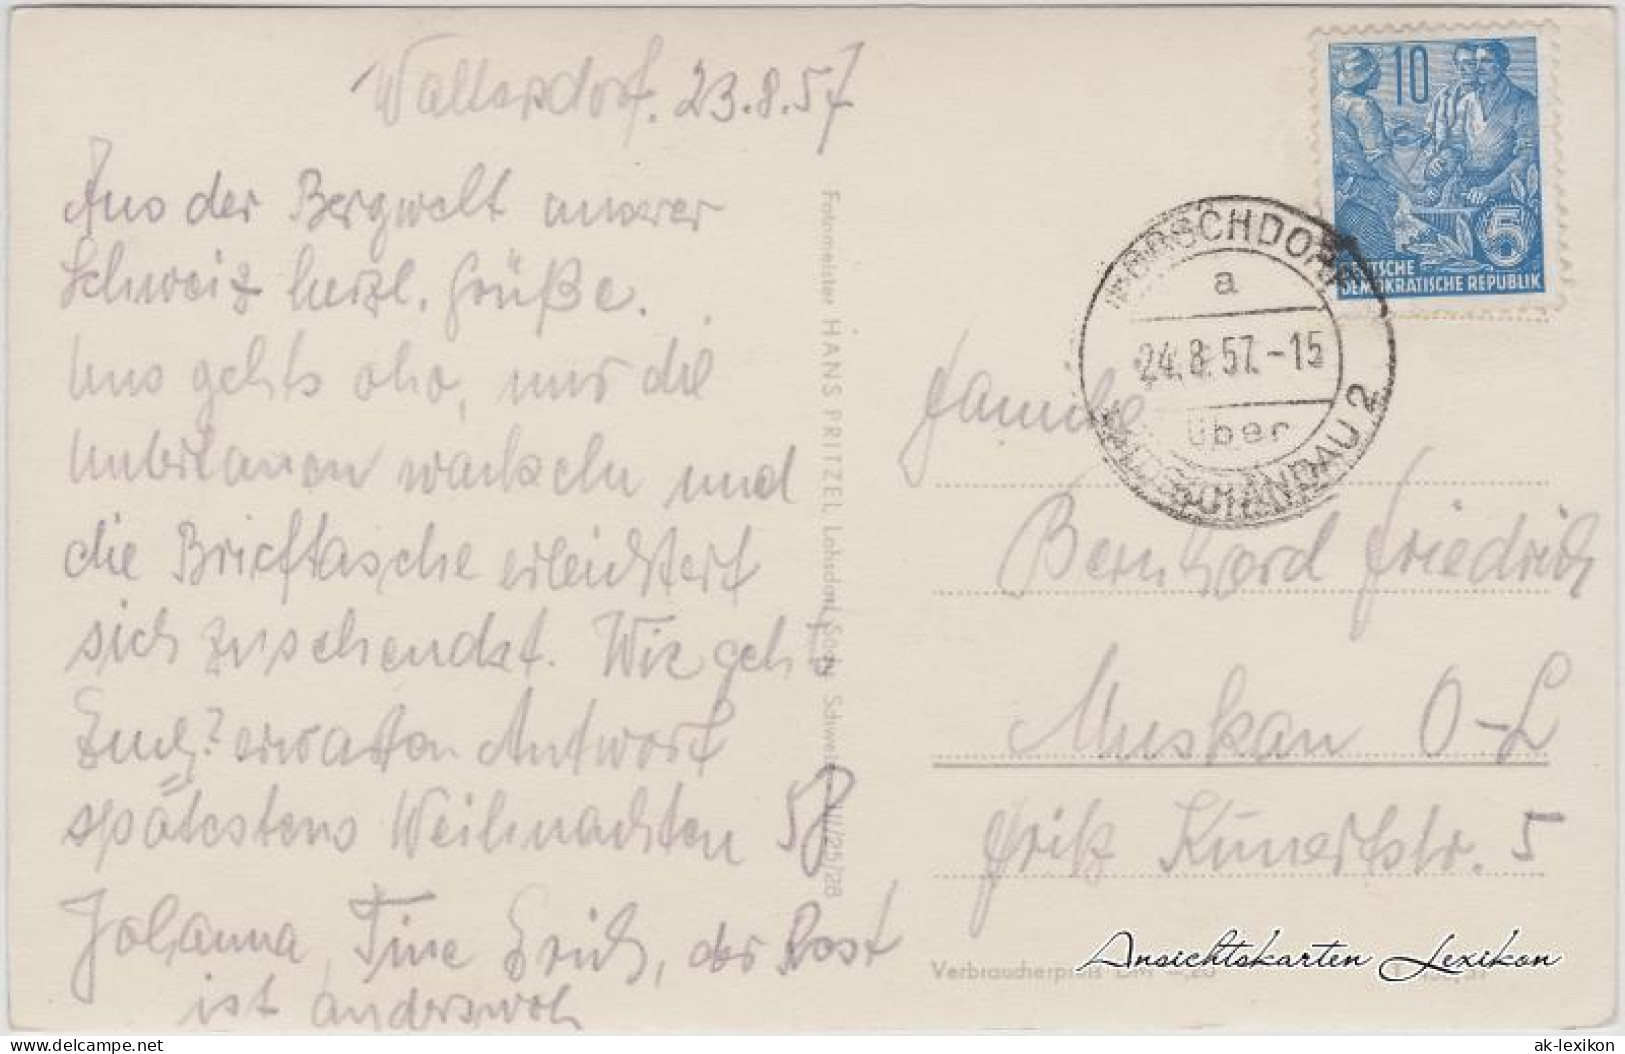 Waltersdorf. 23.8.57
Aus der Bergwelt unserer
Schweiz herzl. Grüße.
Uns gehts oho, nur die
wackeln und
die Brieftasche erleichtert
sich zusehendst. Wie geht
Euch? erwarten Antwort
spätestens Weihnachten 58
Johanna, Tine Erich, der Rest
ist anderswoh
Fotomeister HANS PRITZEL Lohsdorf, Sächs. Schweiz
/25/28
10
5
DEUTSCHE
DEMOKRATISCHE REPUBLIK
PORSCHDORF
a
24.8.57.-15
über
BAD SCHANDAU 2
Familie
Bernhard Friedrich
Muskau O-L
Fritz Kunertstr. 5
Verbraucherpreis DM -,20
Ansichtskarten Lexikon
https://www.delcampe.net
ak-lexikon